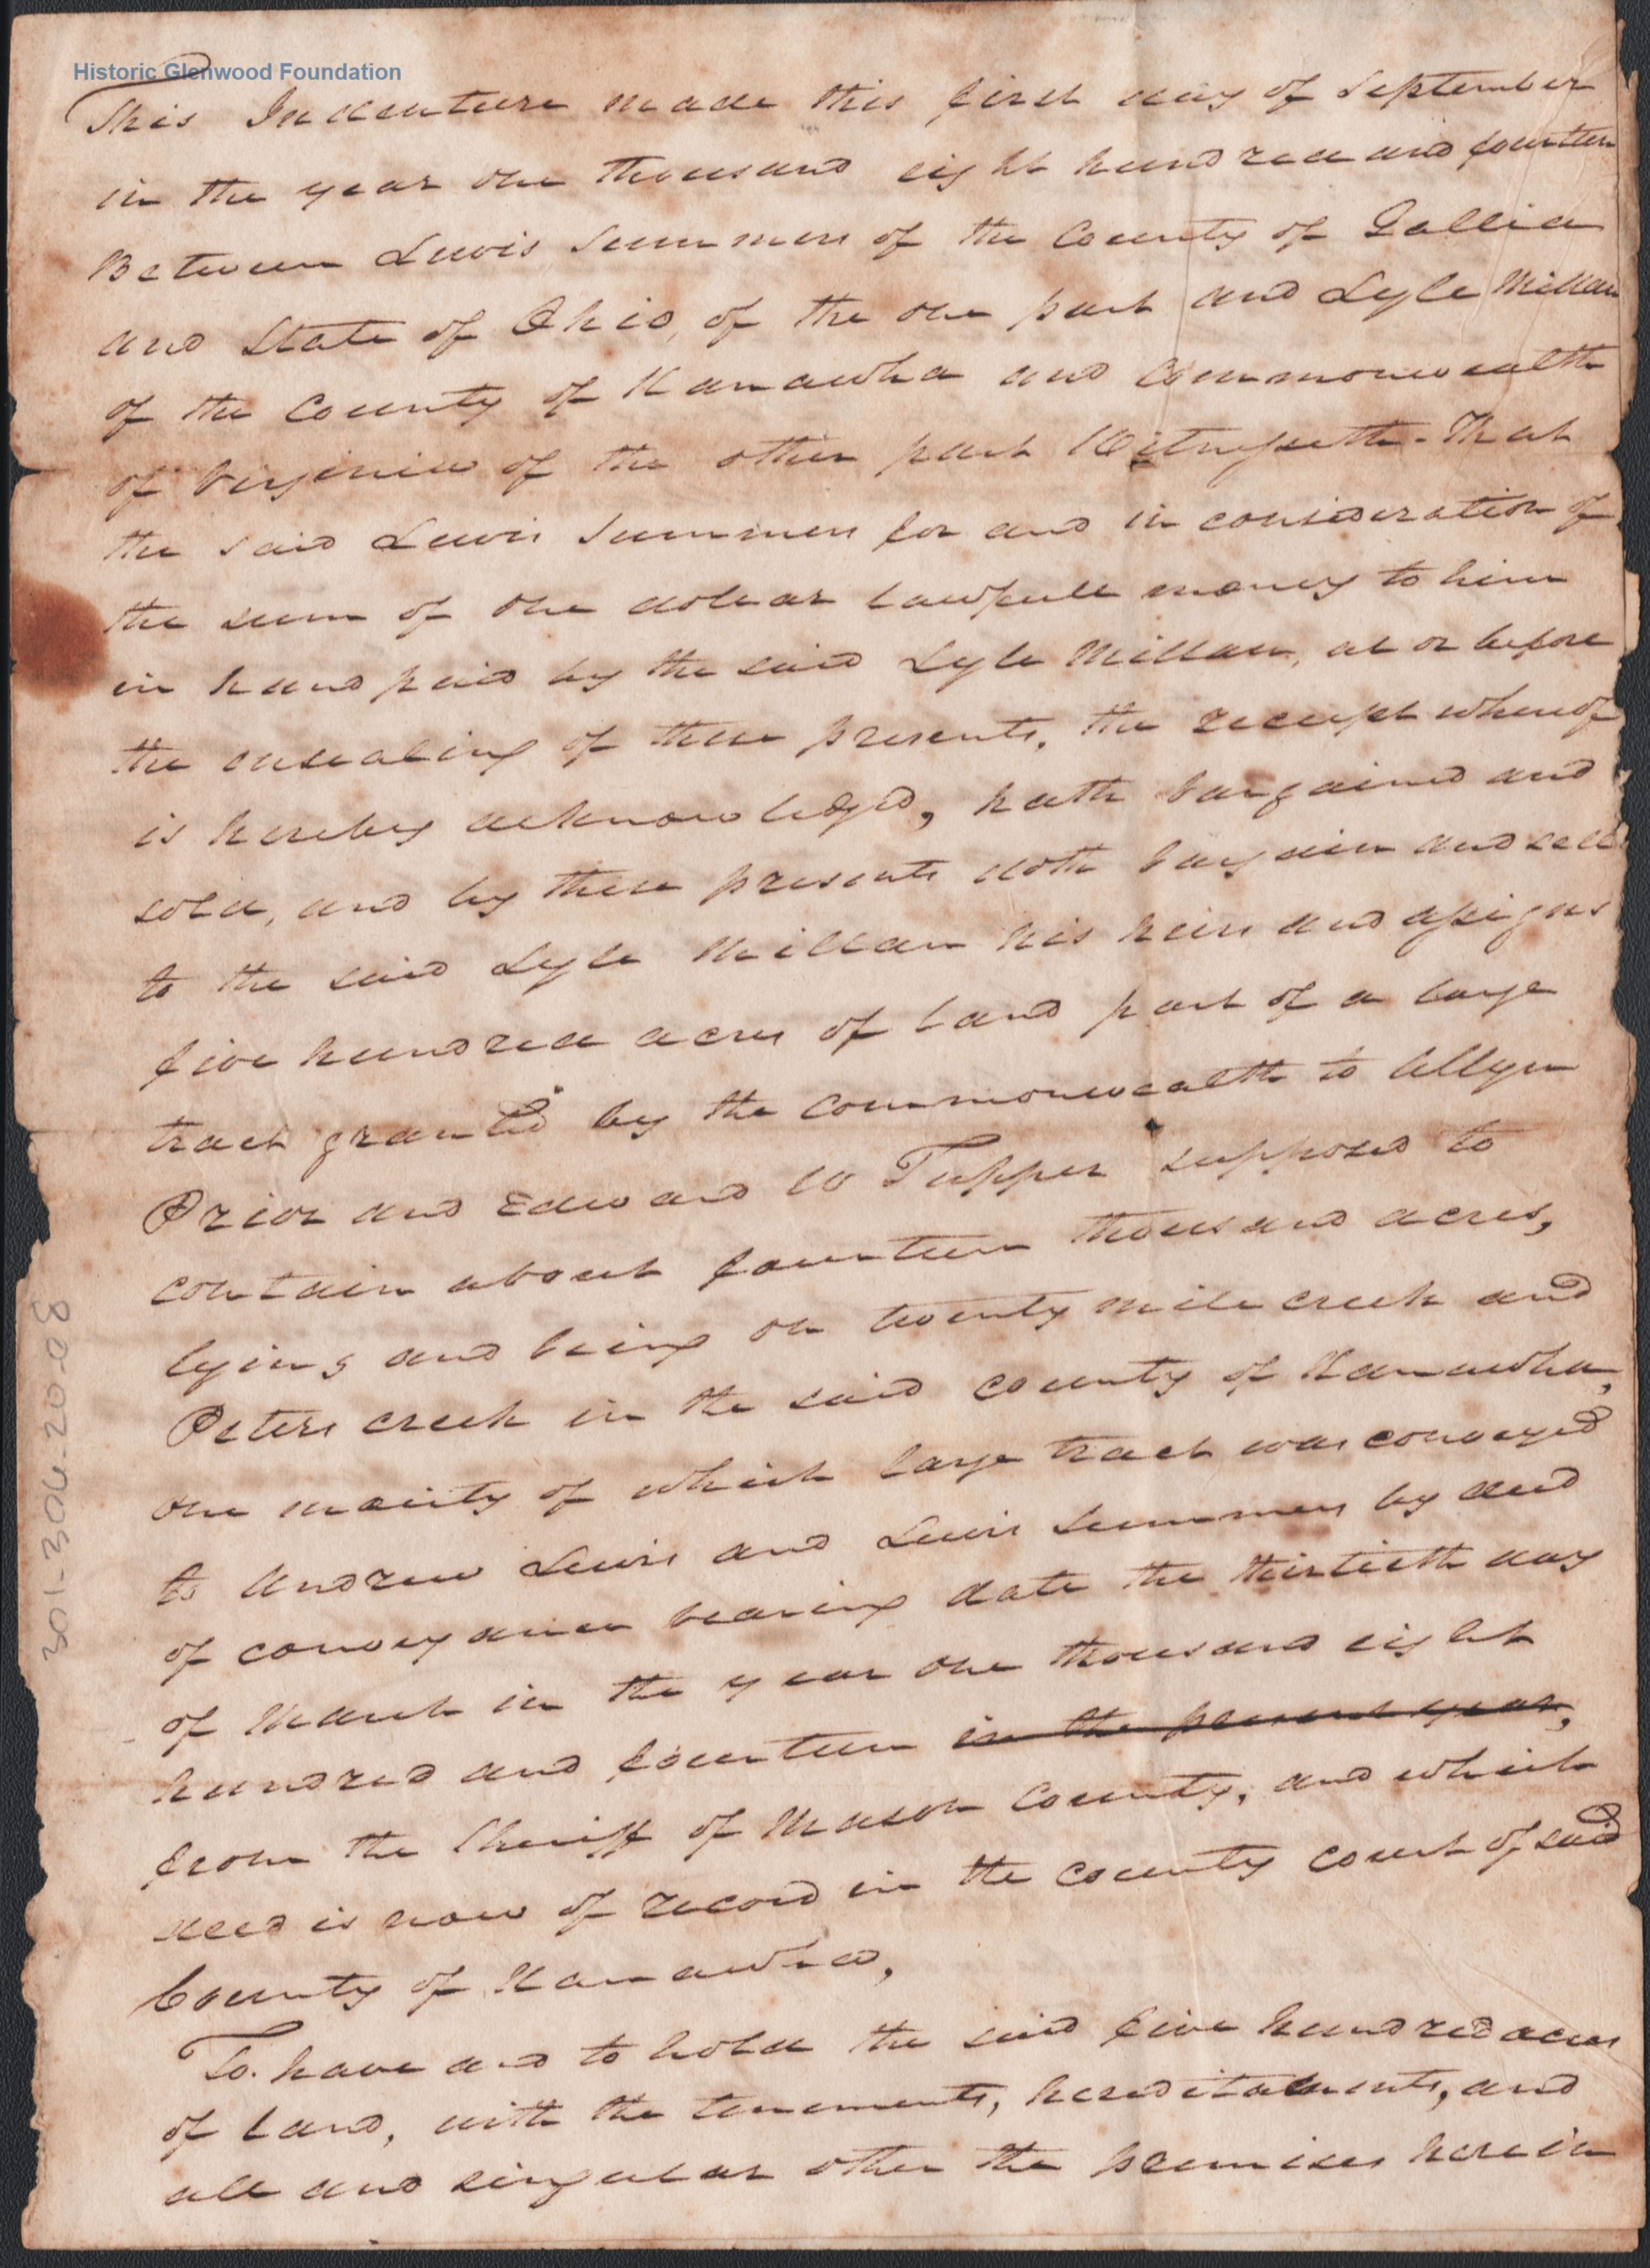 Historic Glenwood Foundation
This Indenture made this first day of September
in the year one thousand eight hundred and fourteen
Between Lewis Summers of the County of Gallia
and State of Ohio, of the one part and Lyle Millan
of the County of Kanawha and Commonwealth
of Virginia of the other part Witnesseth - That
the said Lewis Summers for and in consideration of
the sum of one dollar lawfull money to him
in hand paid by the said Lyle Millan, at or before
the ensealing of these presents, the receipt whereof
is hereby acknowledged, hath bargained and
sold, and by these presents doth bargain and sell
to the said Lyle Millan his heirs and assigns
five hundred acres of land part of a large
tract granted by the Commonwealth to Allyn
Prior and Edward W Tupper supposed to
contain about fourteen thousand acres,
lying and being on twenty mile creek and
Peters creek in the said county of Kanawha,
one moiety of which large tract was conveyed
to Andrew Lewis and Lewis Summers by deed
of conveyance bearing date the thirtieth day
of March in the year one thousand eight
hundred and fourteen in the present year,
from the Sheriff of Mason County, and which
deed is now of record in the county court of said
County of Kanawha,
To have and to hold the said five hundred acres
of land, with the tenements, hereditaments, and
all and singular other the premises herein
301-306-20-08